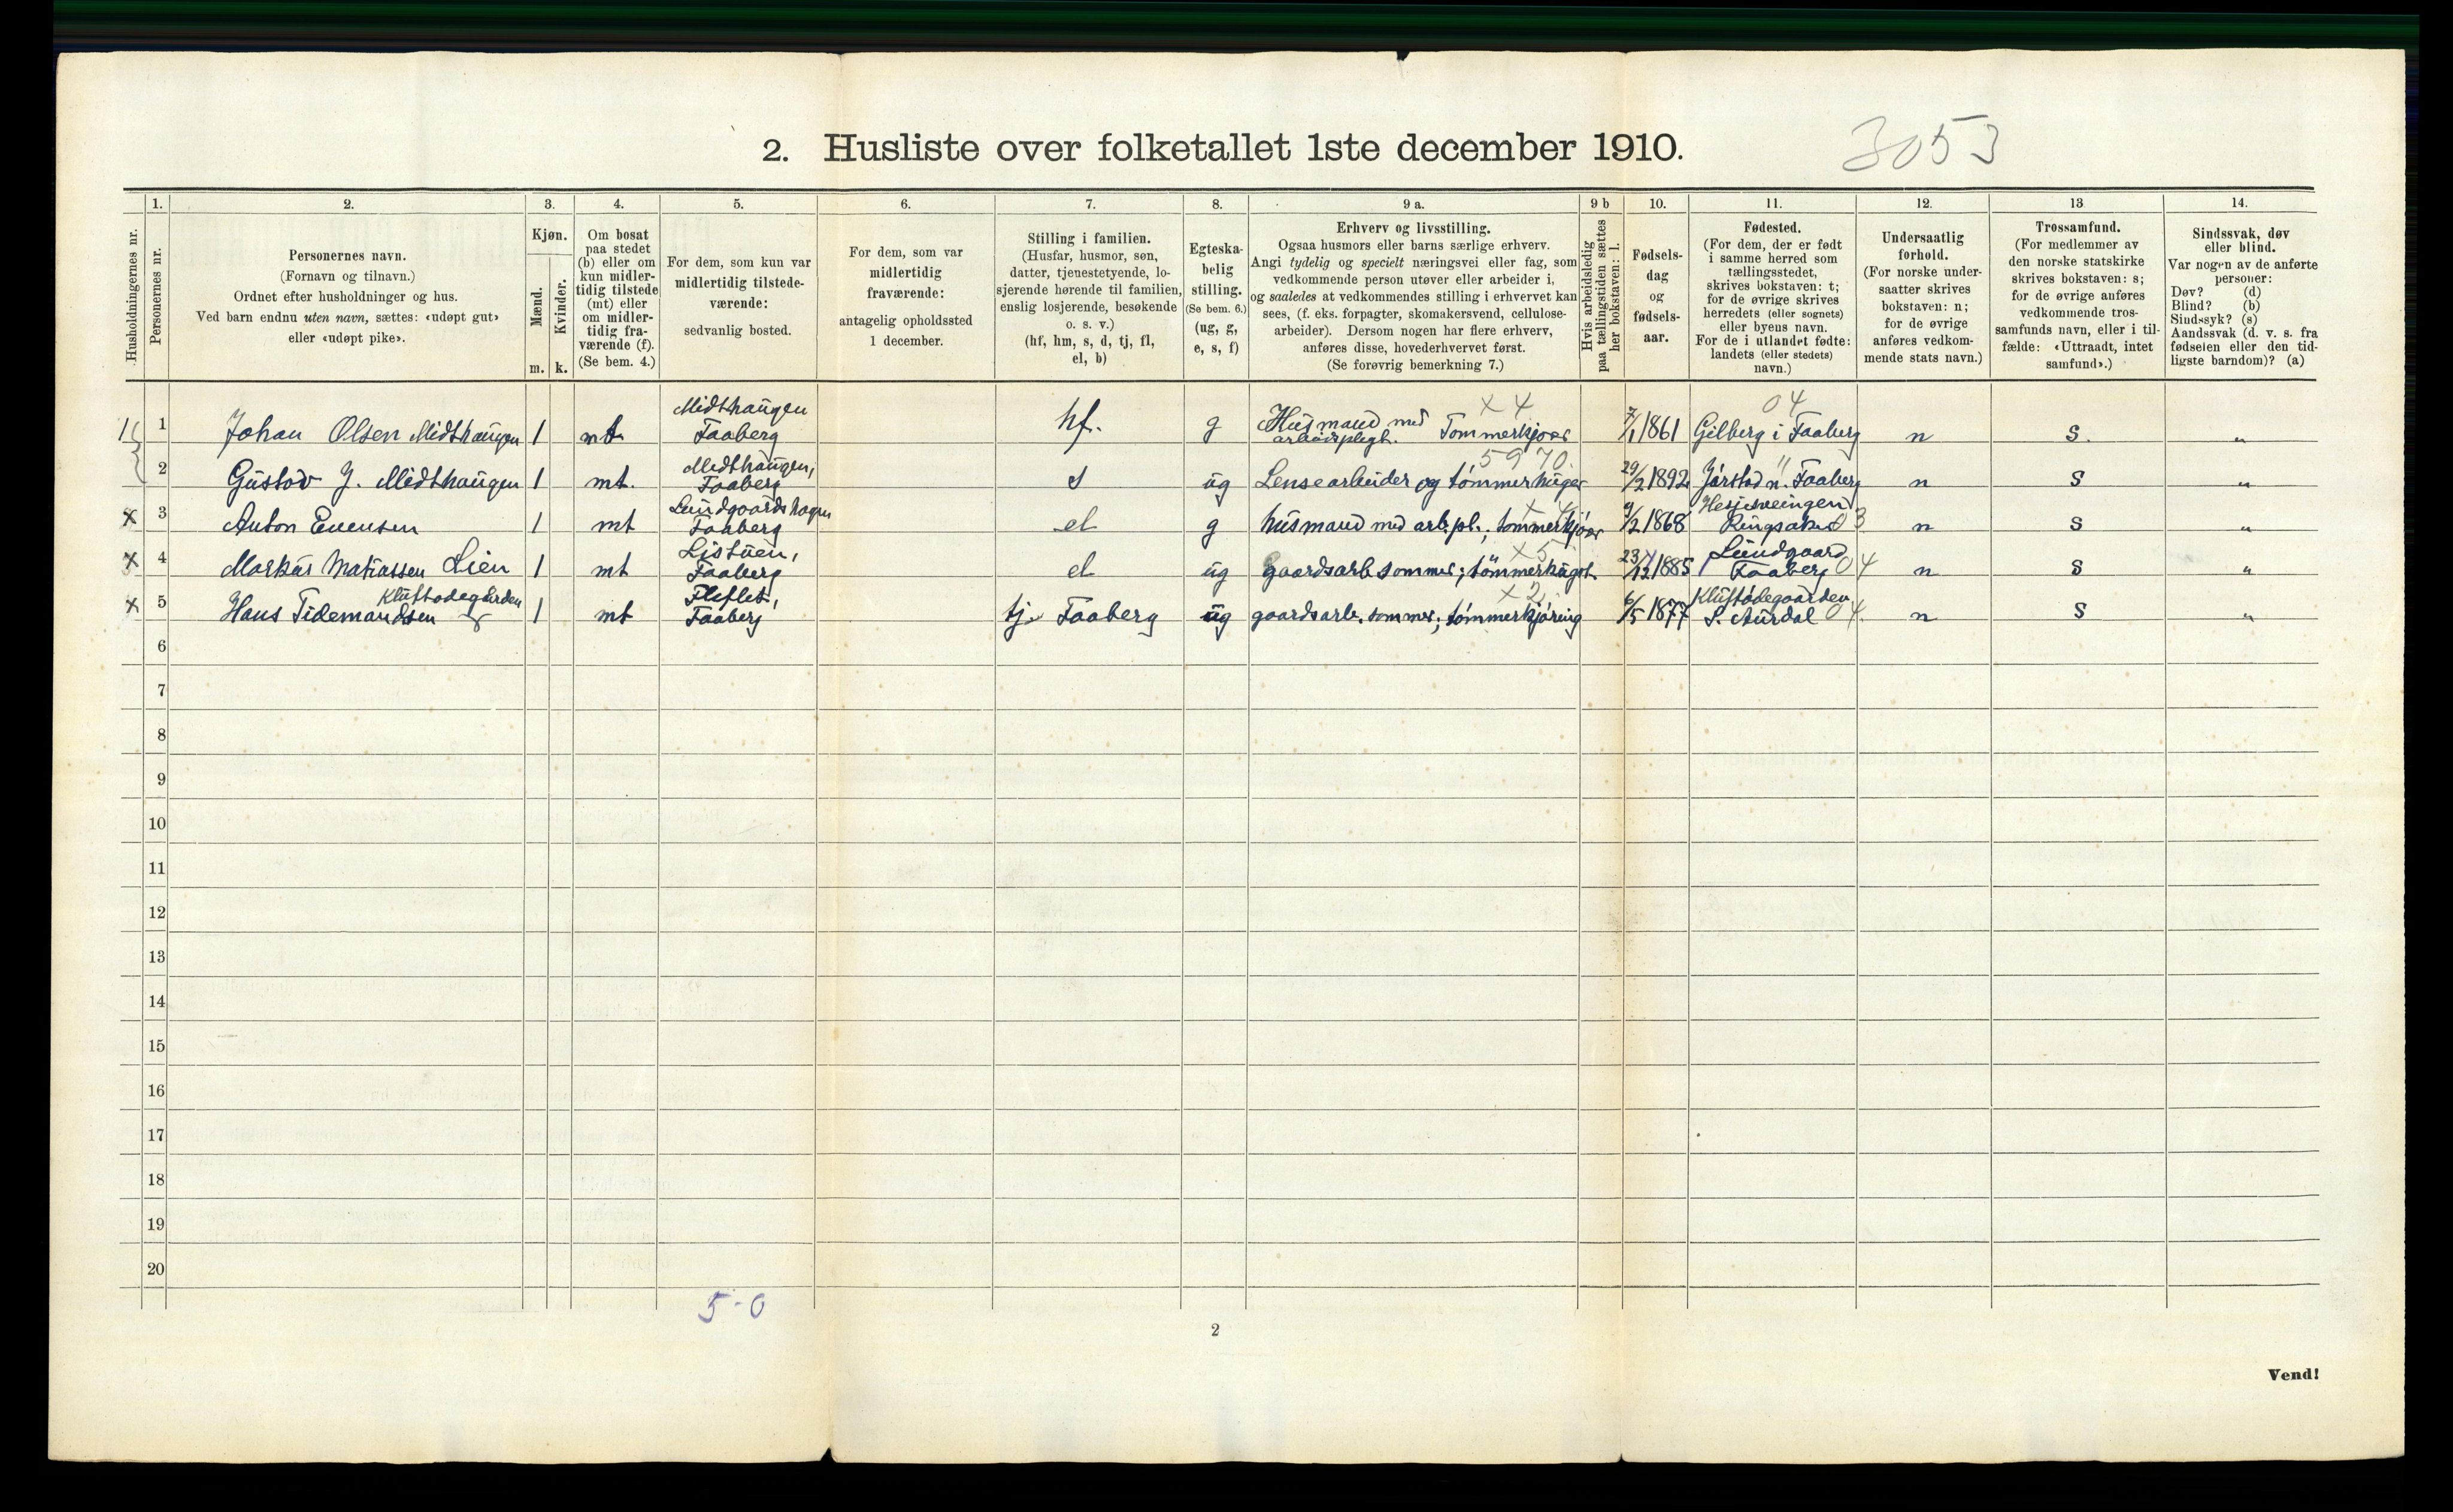 2. Husliste over folketallet 1ste december 1910.
3053
Husholdningernes nr.
1.
Personernes nr.
2.
Personernes navn.
(Fornavn og tilnavn.)
Ordnet efter husholdninger og hus.
Ved barn endnu uten navn, sættes: «udøpt gut»
eller «udøpt pike».
3.
Kjøn.
Mænd.
Kvinder.
m. k.
4.
Om bosat
paa stedet
(b) eller om
kun midler-
tidig tilstede
(mt) eller
om midler-
tidig fra-
værende (f).
(Se bem. 4.)
5.
For dem, som kun var
midlertidig tilstede-
værende:
sedvanlig bosted.
6.
For dem, som var
midlertidig
fraværende:
antagelig opholdssted
1 december.
7.
Stilling i familien.
(Husfar, husmor, søn,
datter, tjenestetyende, lo-
sjerende hørende til familien,
enslig losjerende, besøkende
o. s. v.)
(hf, hm, s, d, tj, fl,
el, b)
8.
Egteska-
belig
stilling.
(Se bem. 6.)
(ug, g,
e, s, f)
9 a.
Erhverv og livsstilling.
Ogsaa husmors eller barns særlige erhverv.
Angi tydelig og specielt næringsvei eller fag, som
vedkommende person utøver eller arbeider i,
og saaledes at vedkommendes stilling i erhvervet kan
sees, (f. eks. forpagter, skomakersvend, cellulose-
arbeider). Dersom nogen har flere erhverv,
anføres disse, hovederhvervet først.
(Se forøvrig bemerkning 7.)
9 b
Hvis arbeidsledig
paa tællingstiden sættes
her bokstaven: l.
10.
Fødsels-
dag
og
fødsels-
aar.
11.
Fødested.
(For dem, der er født
i samme herred som
tællingsstedet,
skrives bokstaven: t;
for de øvrige skrives
herredets (eller sognets)
eller byens navn.
For de i utlandet fødte:
landets (eller stedets)
navn.)
12.
Undersaatlig
forhold.
(For norske under-
saatter skrives
bokstaven: n;
for de øvrige
anføres vedkom-
mende stats navn.)
13
Trossamfund.
(For medlemmer av
den norske statskirke
skrives bokstaven: s;
for de øvrige anføres
vedkommende tros-
samfunds navn, eller i til-
fælde: «Uttraadt, intet
samfund».)
14.
Sindssvak, døv
eller blind.
Var nogen av de anførte
personer:
Døv? (d)
Blind? (b)
Sindssyk? (s)
Aandssvak (d. v. s. fra
fødselen eller den tid-
ligste barndom)? (a)
Midthaugen x 4 04
1 1 Johan Olsen Midthaugen 1 mt. Faaberg hf. g Husmand med arbeidspligt. Tømmerkjører 7/1 1861 Gilberg i Faaberg n s. "
Midthaugen, 5970 "
2 Gustav J. Midthaugen 1 mt. Faaberg s ug Lensearbeider og tømmerhuger 29/2 1892 Jørstad n. Faaberg n s "
Lundgaardshagen x 4 Hesjesveingen
x 3 Anton Evensen 1 mt Faaberg el g husmand med arb.pl.; tømmerkjører 9/2 1868 Ringsaker 03 n s "
Listuen, x 5 Lundgaard
x 4 Markus Matiassen Lien 1 mt Faaberg el ug gaardsarb sommer; tømmerhuget 23/12 1885 Faaberg 04 n s "
Kluftødegården Fleflet, x 2 Kluftødegaarden
x 5 Hans Tidemandsen 1 mt Faaberg tj. Faaberg ug gaardsarb. sommer; tømmerkjøring 6/5 1877 S. Aurdal 04. n s "
6
7
8
9
10
11
12
13
14
15
16
17
18
19
20
5-0
2
Vend!